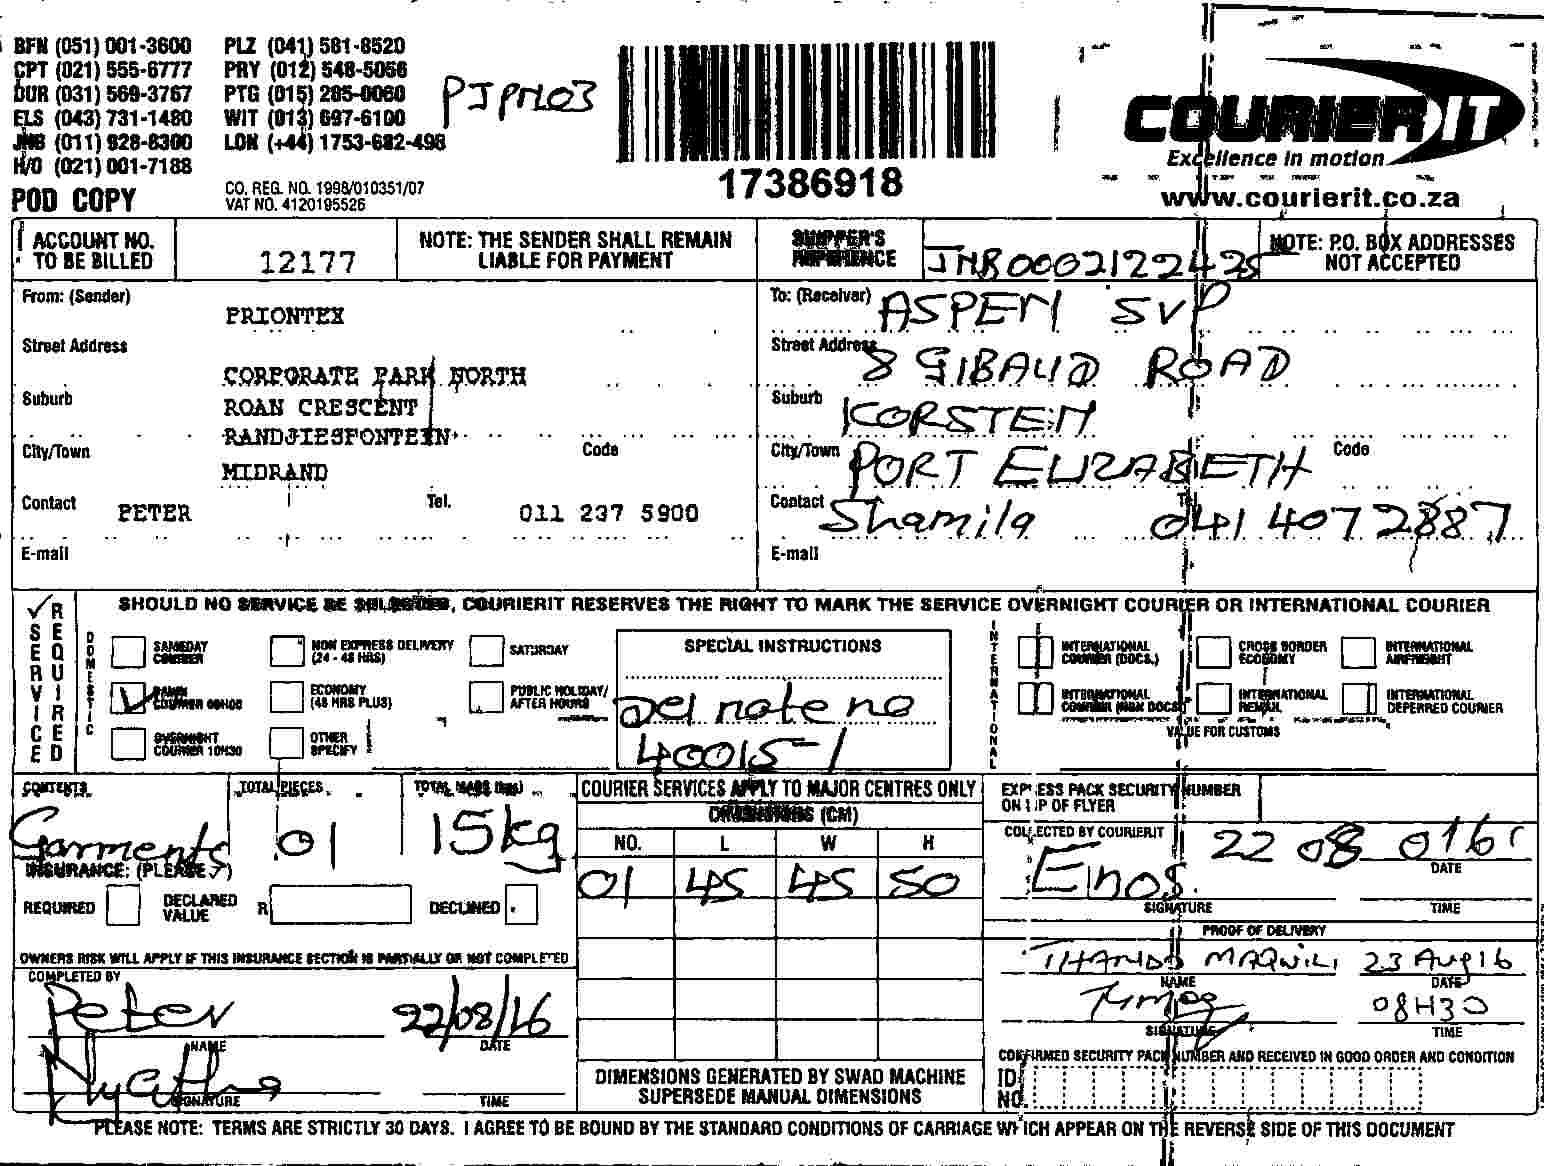 BFN (051) 001-3600 PLZ (041) 581-8520
CPT (021) 555-6777 PRY (012) 548-5056
DUR (031) 569-3767 PTG (015) 285-0060
ELS (043) 731-1480 WIT (013) 697-6100
JNB (011) 928-8300 LON (+44) 1753-682-498
H/O (021) 001-7188
POD COPY
CO. REG. NO. 1998/010351/07
VAT NO. 4120195526
17386918
COURIER IT
Excellence in motion
www.courierit.co.za
ACCOUNT NO. TO BE BILLED
12177
NOTE: THE SENDER SHALL REMAIN LIABLE FOR PAYMENT
SHIPPER'S REFERENCE
JNB0002122425
NOTE: P.O. BOX ADDRESSES NOT ACCEPTED
From: (Sender)
PRIONTEX
Street Address
CORPORATE PARK NORTH
Suburb
ROAN CRESCENT
RANDJIESFONTEIN
City/Town
Code
MIDRAND
Contact
PETER
Tel.
011 237 5900
E-mail
To: (Receiver)
ASPEN SVP
Street Address
8 GIBAUD ROAD
Suburb
KORSTEN
City/Town
PORT ELIZABETH
Code
Contact
Shamila
041 4072887
E-mail
SERVICE REQUIRED
SHOULD NO SERVICE BE SELECTED, COURIERIT RESERVES THE RIGHT TO MARK THE SERVICE OVERNIGHT COURIER OR INTERNATIONAL COURIER
DOMESTIC
SAMEDAY COURIER
NON EXPRESS DELIVERY (24 - 48 HRS)
SATURDAY
COURIER
ECONOMY (48 HRS PLUS)
PUBLIC HOLIDAY/ AFTER HOURS
OVERNIGHT COURIER 10H30
OTHER SPECIFY
SPECIAL INSTRUCTIONS
Del note no
40015-1
INTERNATIONAL
INTERNATIONAL COURIER (DOCS.)
CROSS BORDER ECONOMY
INTERNATIONAL AIRFREIGHT
INTERNATIONAL COURIER (NON DOCS)
INTERNATIONAL REMAIL
INTERNATIONAL DEFERRED COURIER
VALUE FOR CUSTOMS
CONTENTS
Garments
TOTAL PIECES
01
TOTAL MASS (KGS)
15kg
INSURANCE: (PLEASE ✓)
REQUIRED
DECLARED VALUE
R
DECLINED
OWNERS RISK WILL APPLY IF THIS INSURANCE SECTION IS PARTIALLY OR NOT COMPLETED
COMPLETED BY
Peter
NAME
22/08/16
DATE
SIGNATURE
TIME
COURIER SERVICES APPLY TO MAJOR CENTRES ONLY
DIMENSIONS (CM)
NO. L W H
01 45 45 50
DIMENSIONS GENERATED BY SWAD MACHINE SUPERSEDE MANUAL DIMENSIONS
EXPRESS PACK SECURITY NUMBER ON LIP OF FLYER
COLLECTED BY COURIERIT
Enos
SIGNATURE
22 08
DATE
TIME
PROOF OF DELIVERY
MAQWILI
NAME
23 Aug 16
DATE
SIGNATURE
08H30
TIME
CONFIRMED SECURITY PACK NUMBER AND RECEIVED IN GOOD ORDER AND CONDITION
ID NO.
PLEASE NOTE: TERMS ARE STRICTLY 30 DAYS. I AGREE TO BE BOUND BY THE STANDARD CONDITIONS OF CARRIAGE WHICH APPEAR ON THE REVERSE SIDE OF THIS DOCUMENT